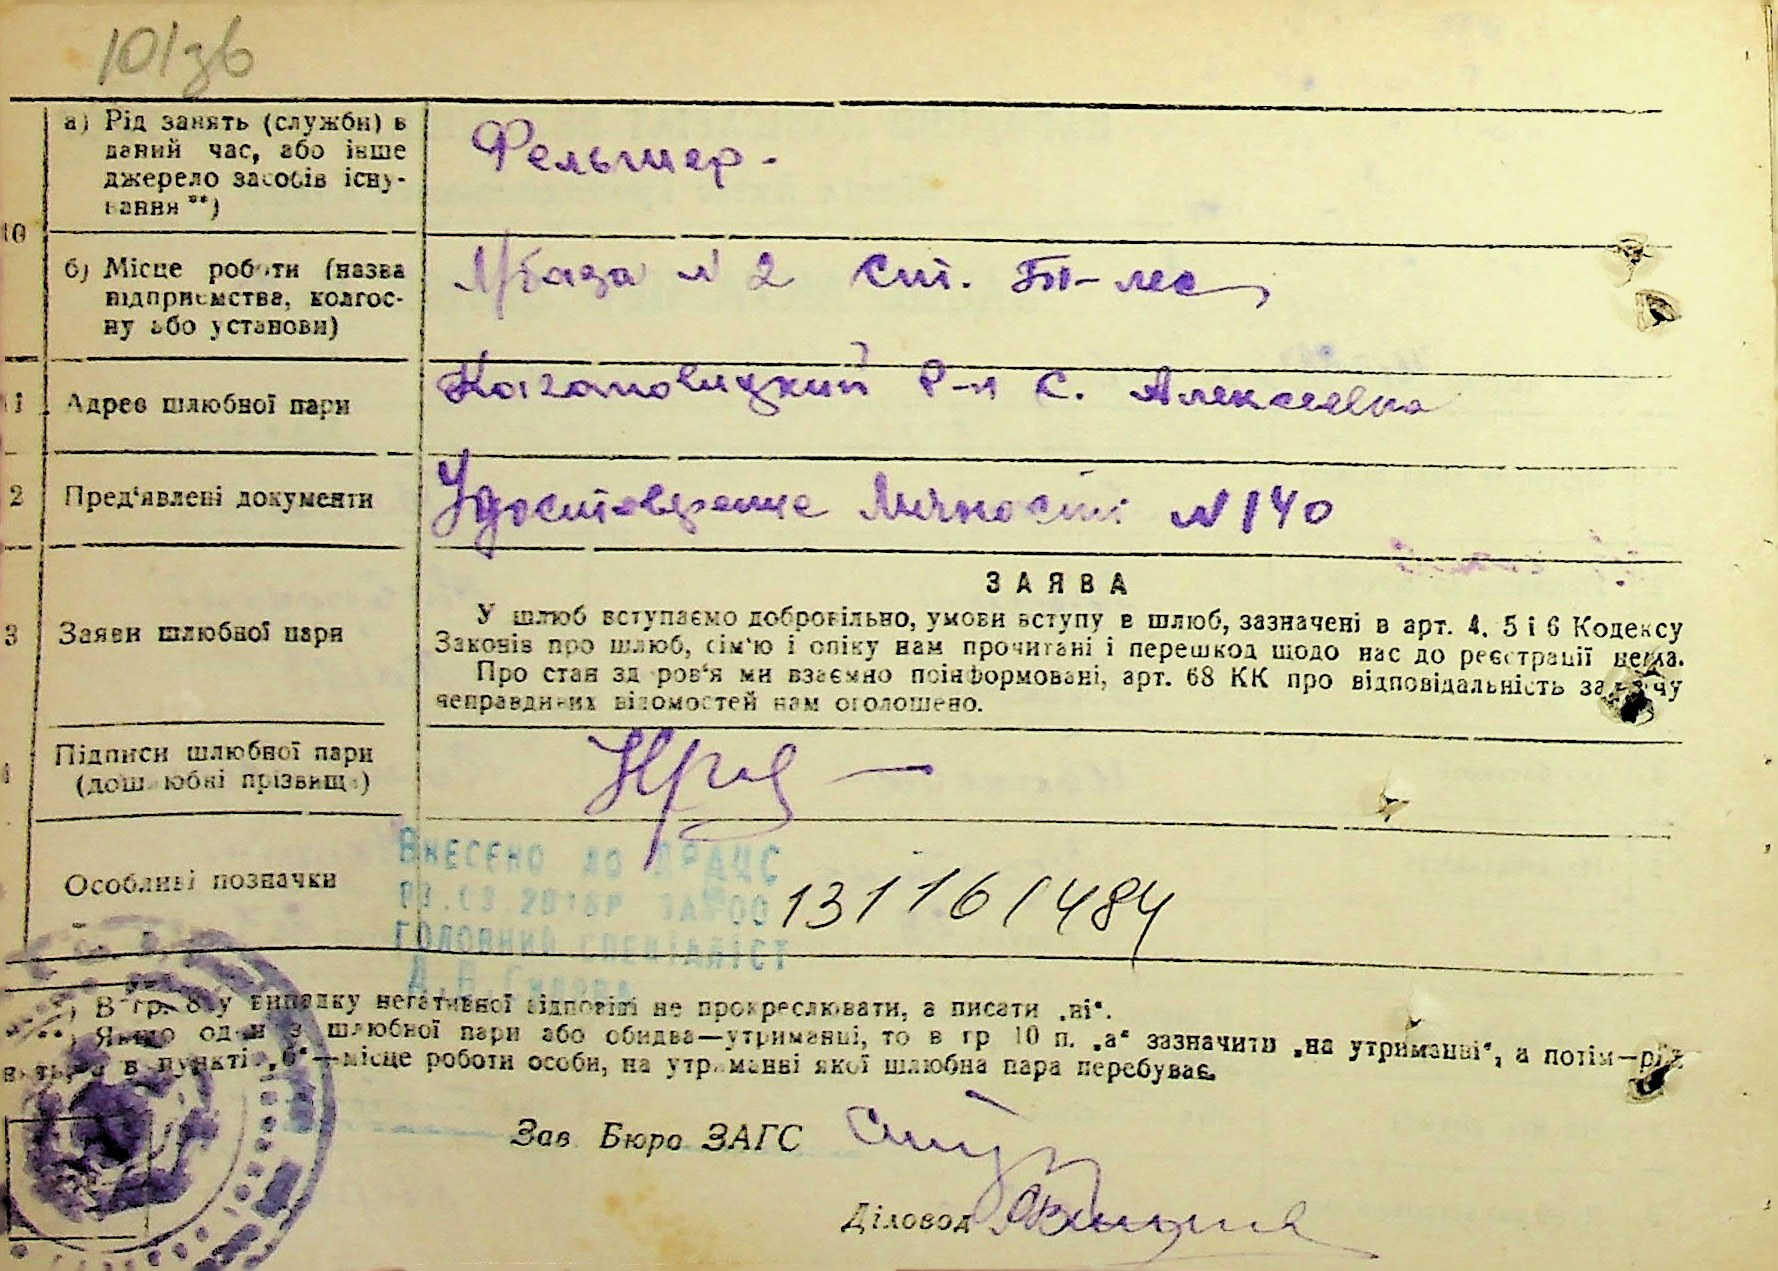 101зв
10
а) Рід занять (служби) в
даний час, або інше
джерело засобів існу-
вання **)
Фельшер -
б) Місце роботи (назва
підприємства, колгос-
пу або установи)
№ 2 ст.
11
Адрес шлюбної пари
Кагановицкий р-н с. Алексеевка
2
Пред'явлені документи
Удостоврение Личности № 140
3
Заяви шлюбної пари
ЗАЯВА
У шлюб вступаємо добровільно, умови вступу в шлюб, зазначені в арт. 4, 5 і 6 Кодексу
Законів про шлюб, сім'ю і опіку нам прочитані і перешкод щодо нас до реєстрації нема.
Про стан здоров'я ми взаємно поінформовані, арт. 68 КК про відповідальність за дачу
неправдивих відомостей нам оголошено.
Підписи шлюбної пари
(дошлюбні прізвища)
Особливі позначки
Внесено до ДРАЦС
Головний спеціаліст
13116/484
*) В гр. 8 у випадку негативної відповіді не прокреслювати, а писати „ні“.
**) Якщо один з шлюбної пари або обидва—утриманці, то в гр 10 п. „а“ зазначити „на утриманні“, а потім—рід
в пункті „б“—місце роботи особи, на утриманні якої шлюбна пара перебуває.
Зав. Бюро ЗАГС
Діловод